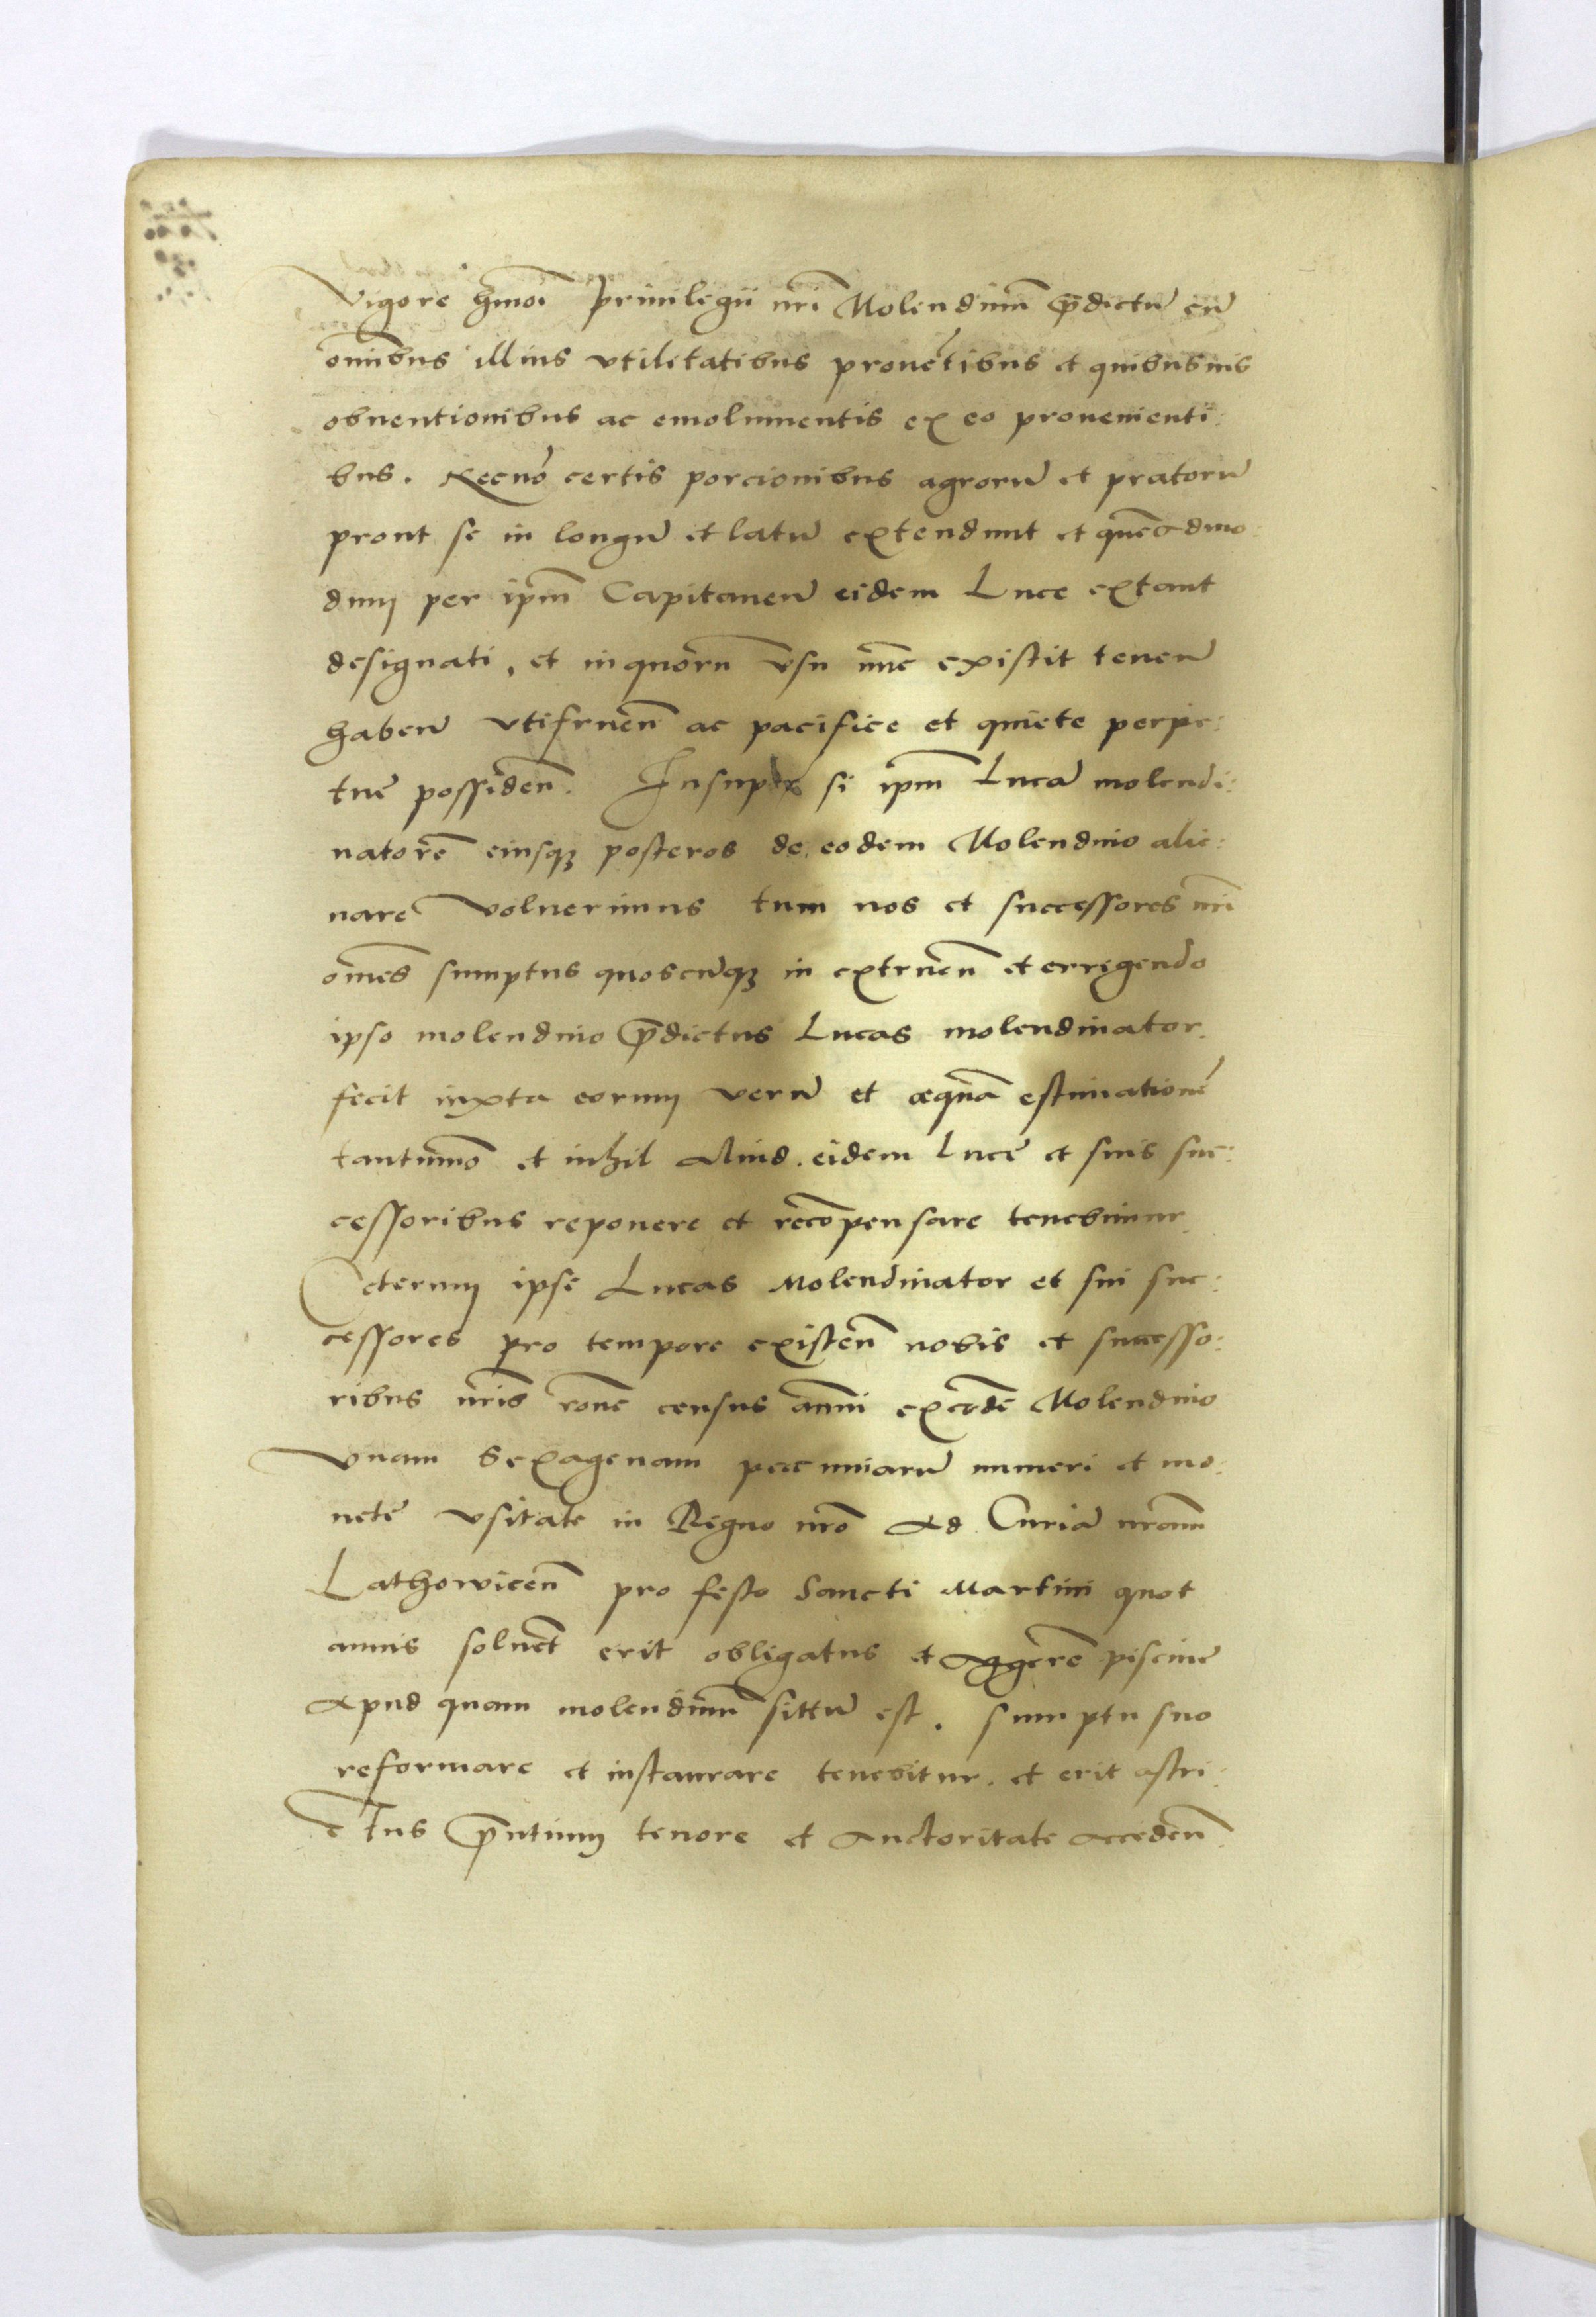 Vigore hm̄oi Priuilegii nr̄i Molendinū p̄dictū cū
om̄ibus illius vtilitatibus prouētibus et quibusuis
obuentionibus ac emolumentis ex eo prouenienti:
bus. Necnō certis porcionibus agrorū et pratorū
prout se in longū et latū extendunt et quēadmo:
dum per ipm̄ Capitaneū eidem Luce extant
designati, et in quorū vsu nūc existit tenen̄
haben̄ vtifruen̄ ac pacifice et quiete perpe:
tue possiden̄. Insuper si ipm̄ Lucā molendi:
natorē eiusq3 posteros de eodem Molendino alie:
nare voluerimus tum nos et successores nr̄i
om̄es sumptus quoscūq3 in extruen̄ et errigendo
ipso molendino p̄dictus Lucas molendinator
fecit iuxta eorum verū et æquā estimationē
tantum̄o et nihil aliud eidem Luce et suis suc:
cessoribus reponere et recōpensare tenebimur
Ceterum ipse Lucas Molendinator et sui suc:
cessores pro tempore existen̄ nobis et successo:
ribus nr̄is rōne census annui ex eodē Molendino
Vnam Sexagenam pecuniarū numeri et mo:
nete vsitate in Regno nr̄o ad Curiā nr̄am
Lathowicen̄ pro festo Sancti Martini quot
annis soluet erit obligatus et Aggerē piscine
apud quam molendinū sittū est. sumptu suo
reformare et instaurare tenebitur. et erit astri:
ctus p̄ntium tenore et auctoritate acceden̄